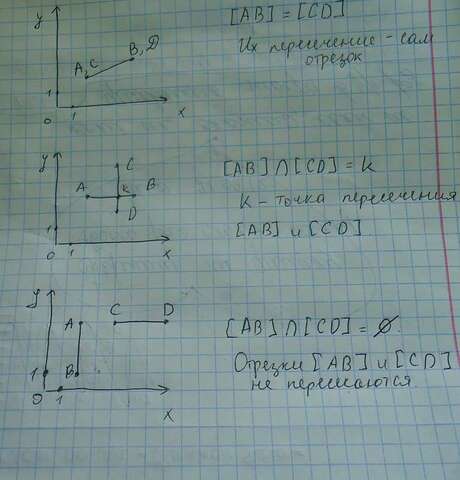 y
[AB] = [CD]
B, D
A, C
Их пересечение - сам
отрезок
1
0 1 x
y
C
[AB] ∩ [CD] = K
A K B
K - точка пересечения
D
[AB] и [CD]
1
0 1 x
y
C D
A
[AB] ∩ [CD] = ∅.
Отрезки [AB] и [CD]
1 B
не пересекаются
0 1 x